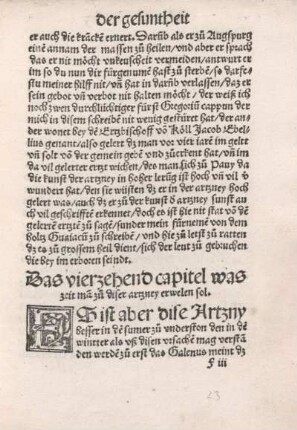 der gesuntheit
er auch die krācke ernert. Darūb als er zů Augspurg
einē annam der massen zů heilen/vnd aber er sprach
das er nit mŏcht vnkeuscheit vermeiden/antwurt er
im so du nun die fürgenumē hast zů sterbē/so darfe
stu meiner hilff nit/vñ hat in darūb verlassen/daz er
sein gebot vñ verbot nit halten mŏcht/der weiß ich
noch zwen durchliichtiger fürst Gregoriū cappun der
mich in disem schreibē nit wenig gestüret hat/der an-
der wonet bey dē Ertzbischoff vō Kŏll Jacob Ebel-
lius genant/also gelert dz man vor vier iarē im gelt
vñ solt vō der gemein gebē vnd zů erkent hat/vñ im
da vil gelerter ertzt wichen/das man sich zů Pauy da
die kunst der artzney in hoher lerūg ist hoch vñ vil v̊
wundert hat/den sie wüsten dz er in der artzney hoch
gelert was/auch dz er zů der kunst d̊ artzney sunst au
ch vil geschrifftē erkennet/doch es ist hie nit stat võ dē
gelertē ertztē zů sagē/sunder mein fürnemē von dem
holtz Guaiacū zů schreibē/vnd hie zů letst zů ratten
dz es zů grossem heil dient/sich der leut zů gebruchen
die bey im erboren seindt.
Das vierzehend capitel was
zeit mā zů diser artzney erwelen sol.
ES ist aber dise Artzny
besser in dē sumer zů vnderston den in dē
wintter als vß disen vrsachē mag verstā
den werdē zů erst das Galenus meint dz
F iii
23